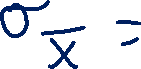 σx̄ =